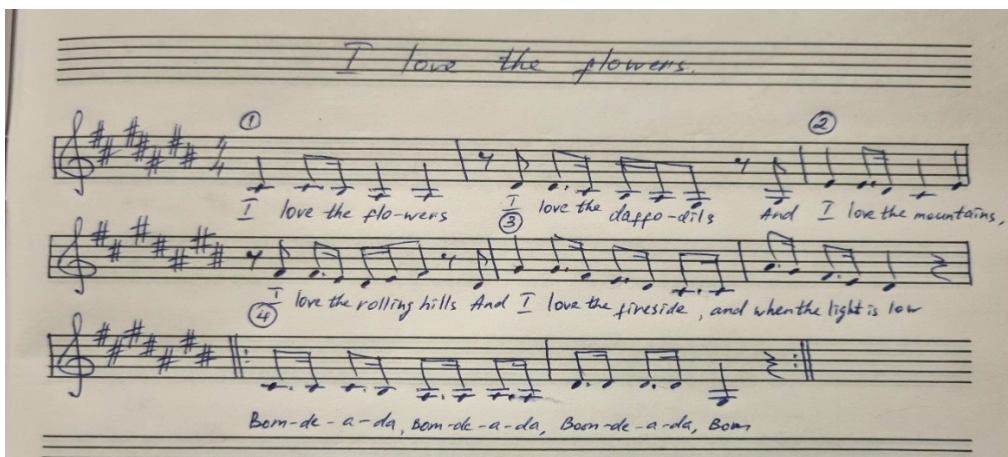 I love the flowers.
① ②
I love the flo-wers I love the daffo-dils And I love the mountains,
③
I love the rolling hills And I love the fireside, and when the light is low
④
Bom-de-a-da, Bom-de-a-da, Bom-de-a-da, Bom